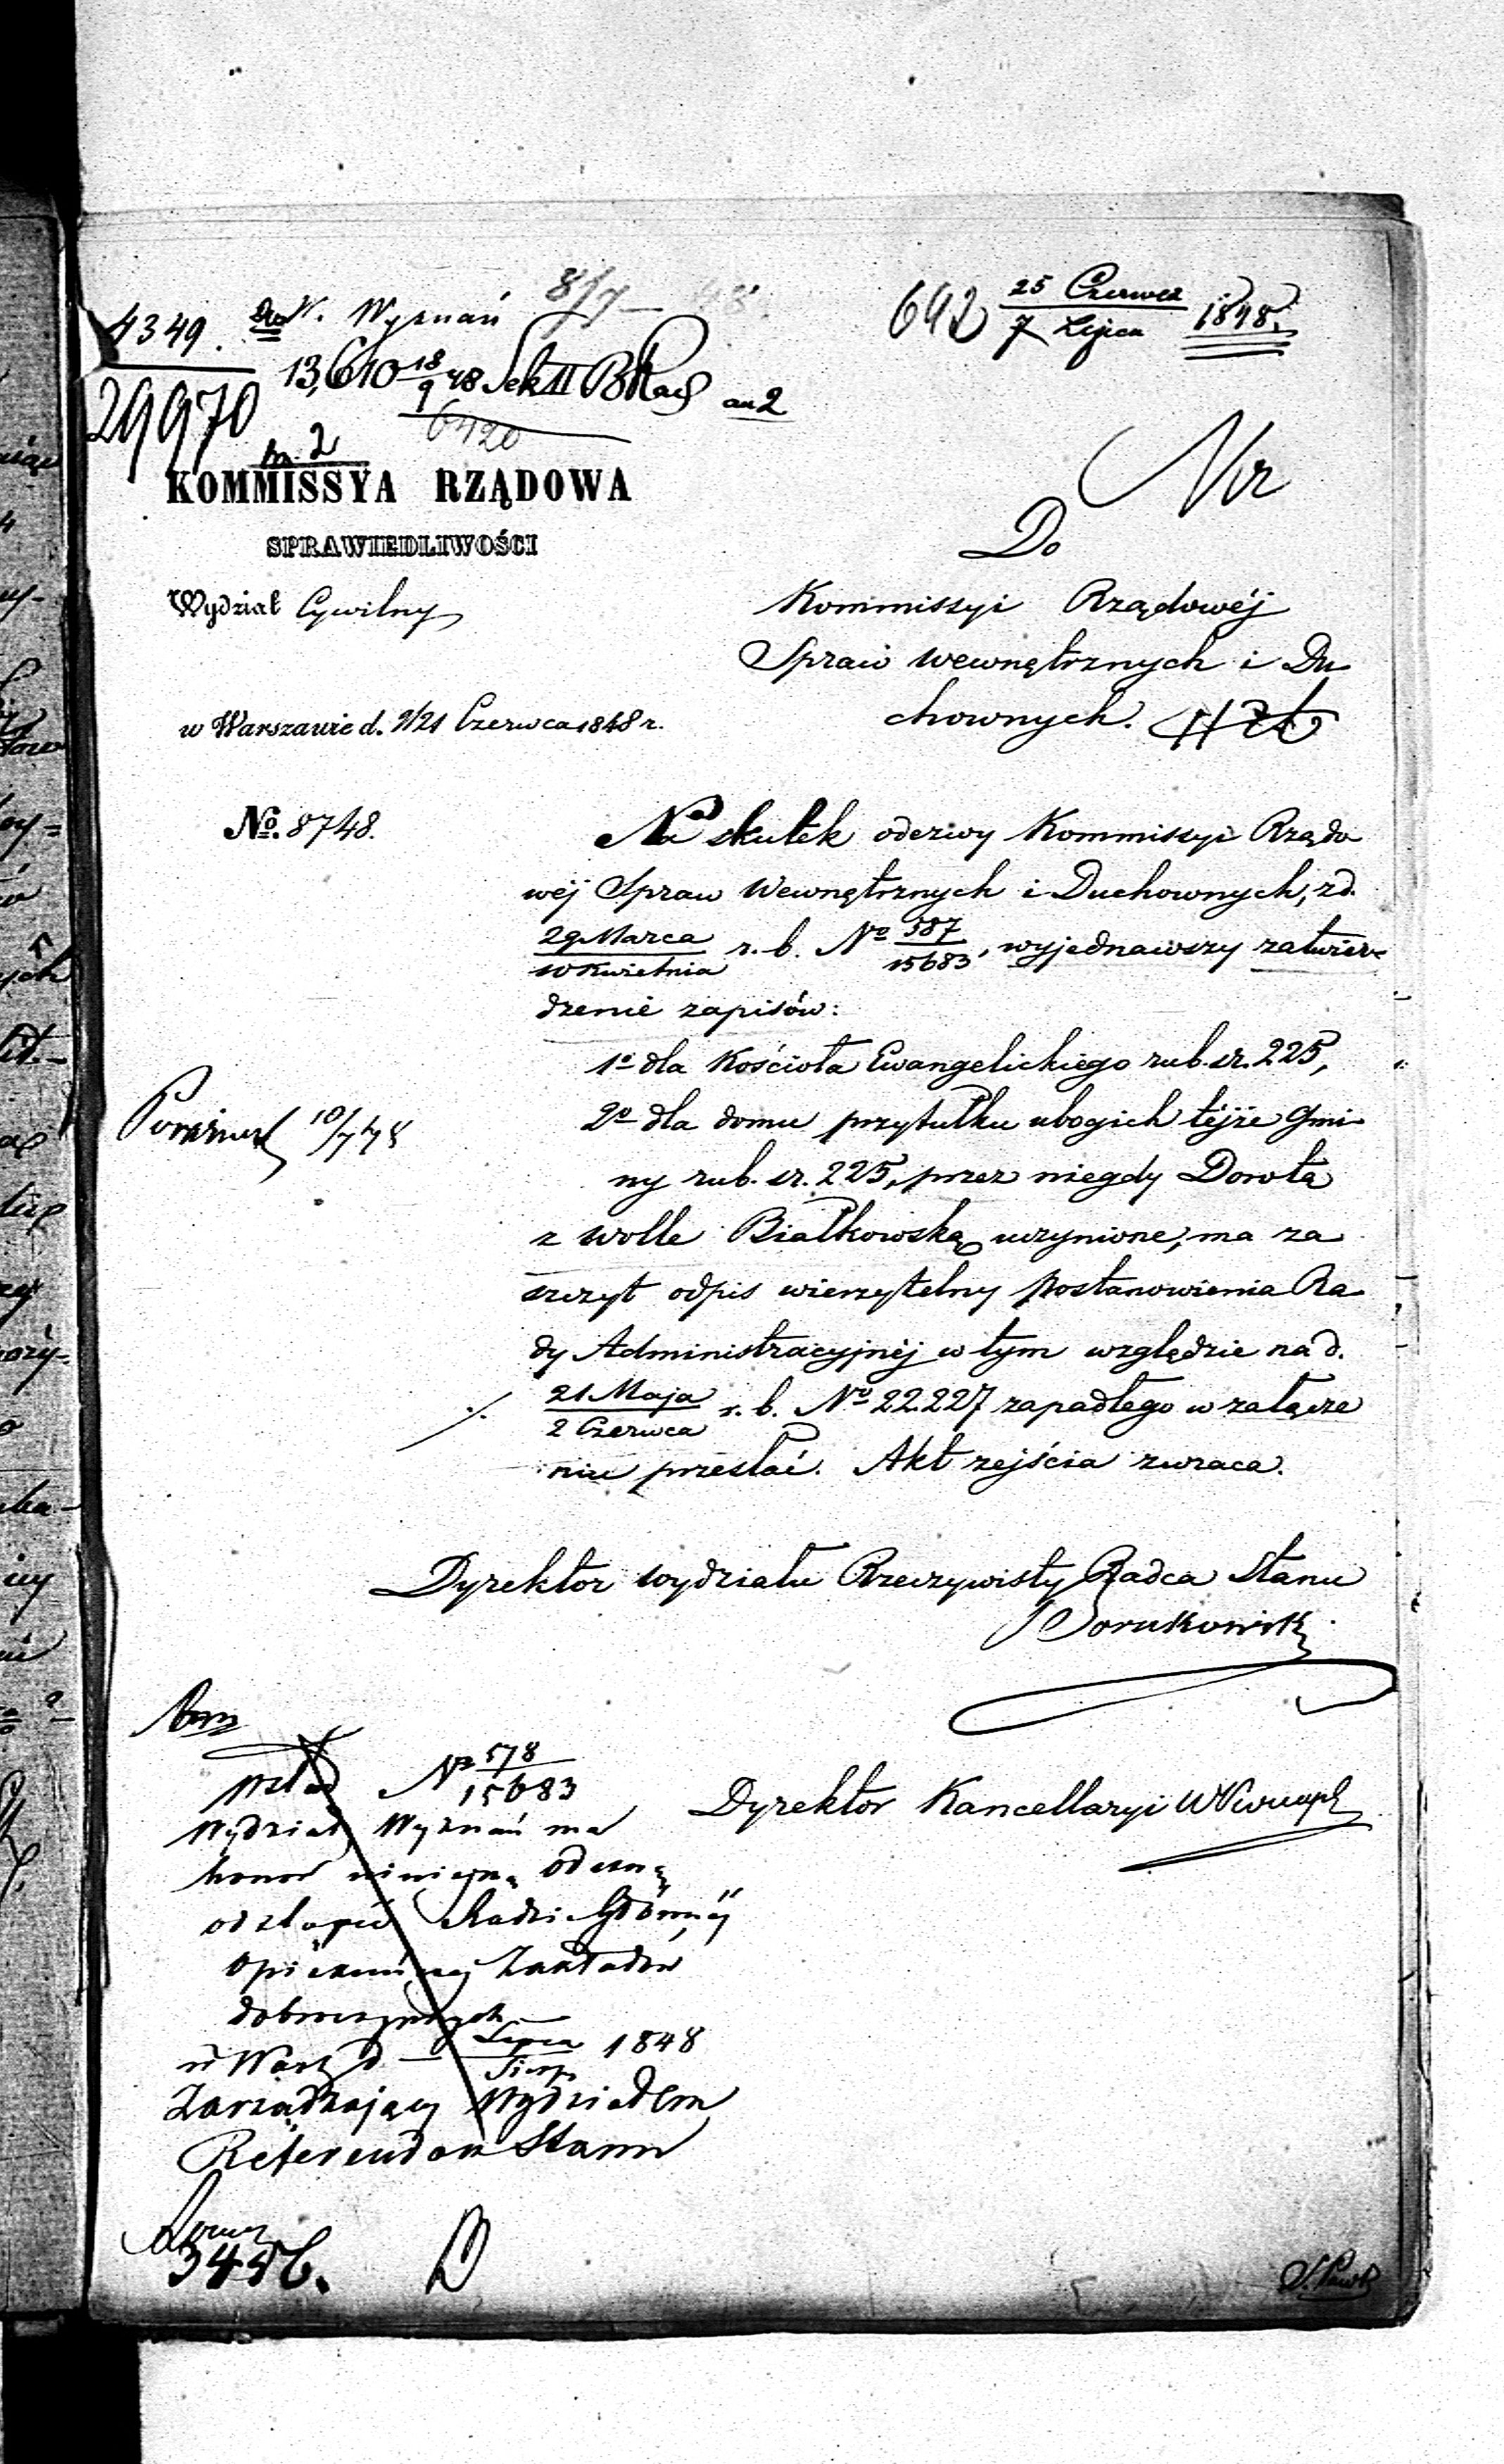 4349. W. Wyznań 8/7 48
29970
13,610 18/9 48 Sek II
6420
692 25 Czerwca / 7 Lipca 1848.
KOMMISSYA RZĄDOWA
SPRAWIEDLIWOŚCI
Wydział Cywilny
w Warszawie d. 9/21 Czerwca 1848 r.
No. 8748.
Do
Kommissyi Rządowéj
Spraw wewnętrznych i Du
chownych.
Na skutek odezwy Kommissyi Rządo
wéj Spraw Wewnętrznych i Duchownych, z d.
29 Marca / 10 Kwietnia r. b. No 587/15683, wyjednawszy zatwier-
dzenie zapisów:
1o dla Kościoła Ewangelickiego rub. sr. 225,
2o dla domu przytułku ubogich téjże Gmi-
ny rub. sr. 225, przez niegdy Dorotę
z Wolle Białkowską uczynione, ma za
szczyt odpis wierzytelny Postanowienia Ra
dy Administracyjnéj w tym względzie na d.
21 Maja / 2 Czerwca r. b. No 22227 zapadłego w załącze
niu przesłać. Akt zejścia zwraca.
10/7 48
Dyrektor wydziału Rzeczywisty Radca Stanu
Dyrektor Kancellaryi
No 578/15683
Wydział Wyznań ma
honor niniejszą odezwę
odstąpić Radzie Głównéj
Opiekuńczej Zakładów
dobroczynnych
w Warsz d — Lipca / Sierp 1848
Zarządzający Wydziałem
Referendarz Stanu
3456.